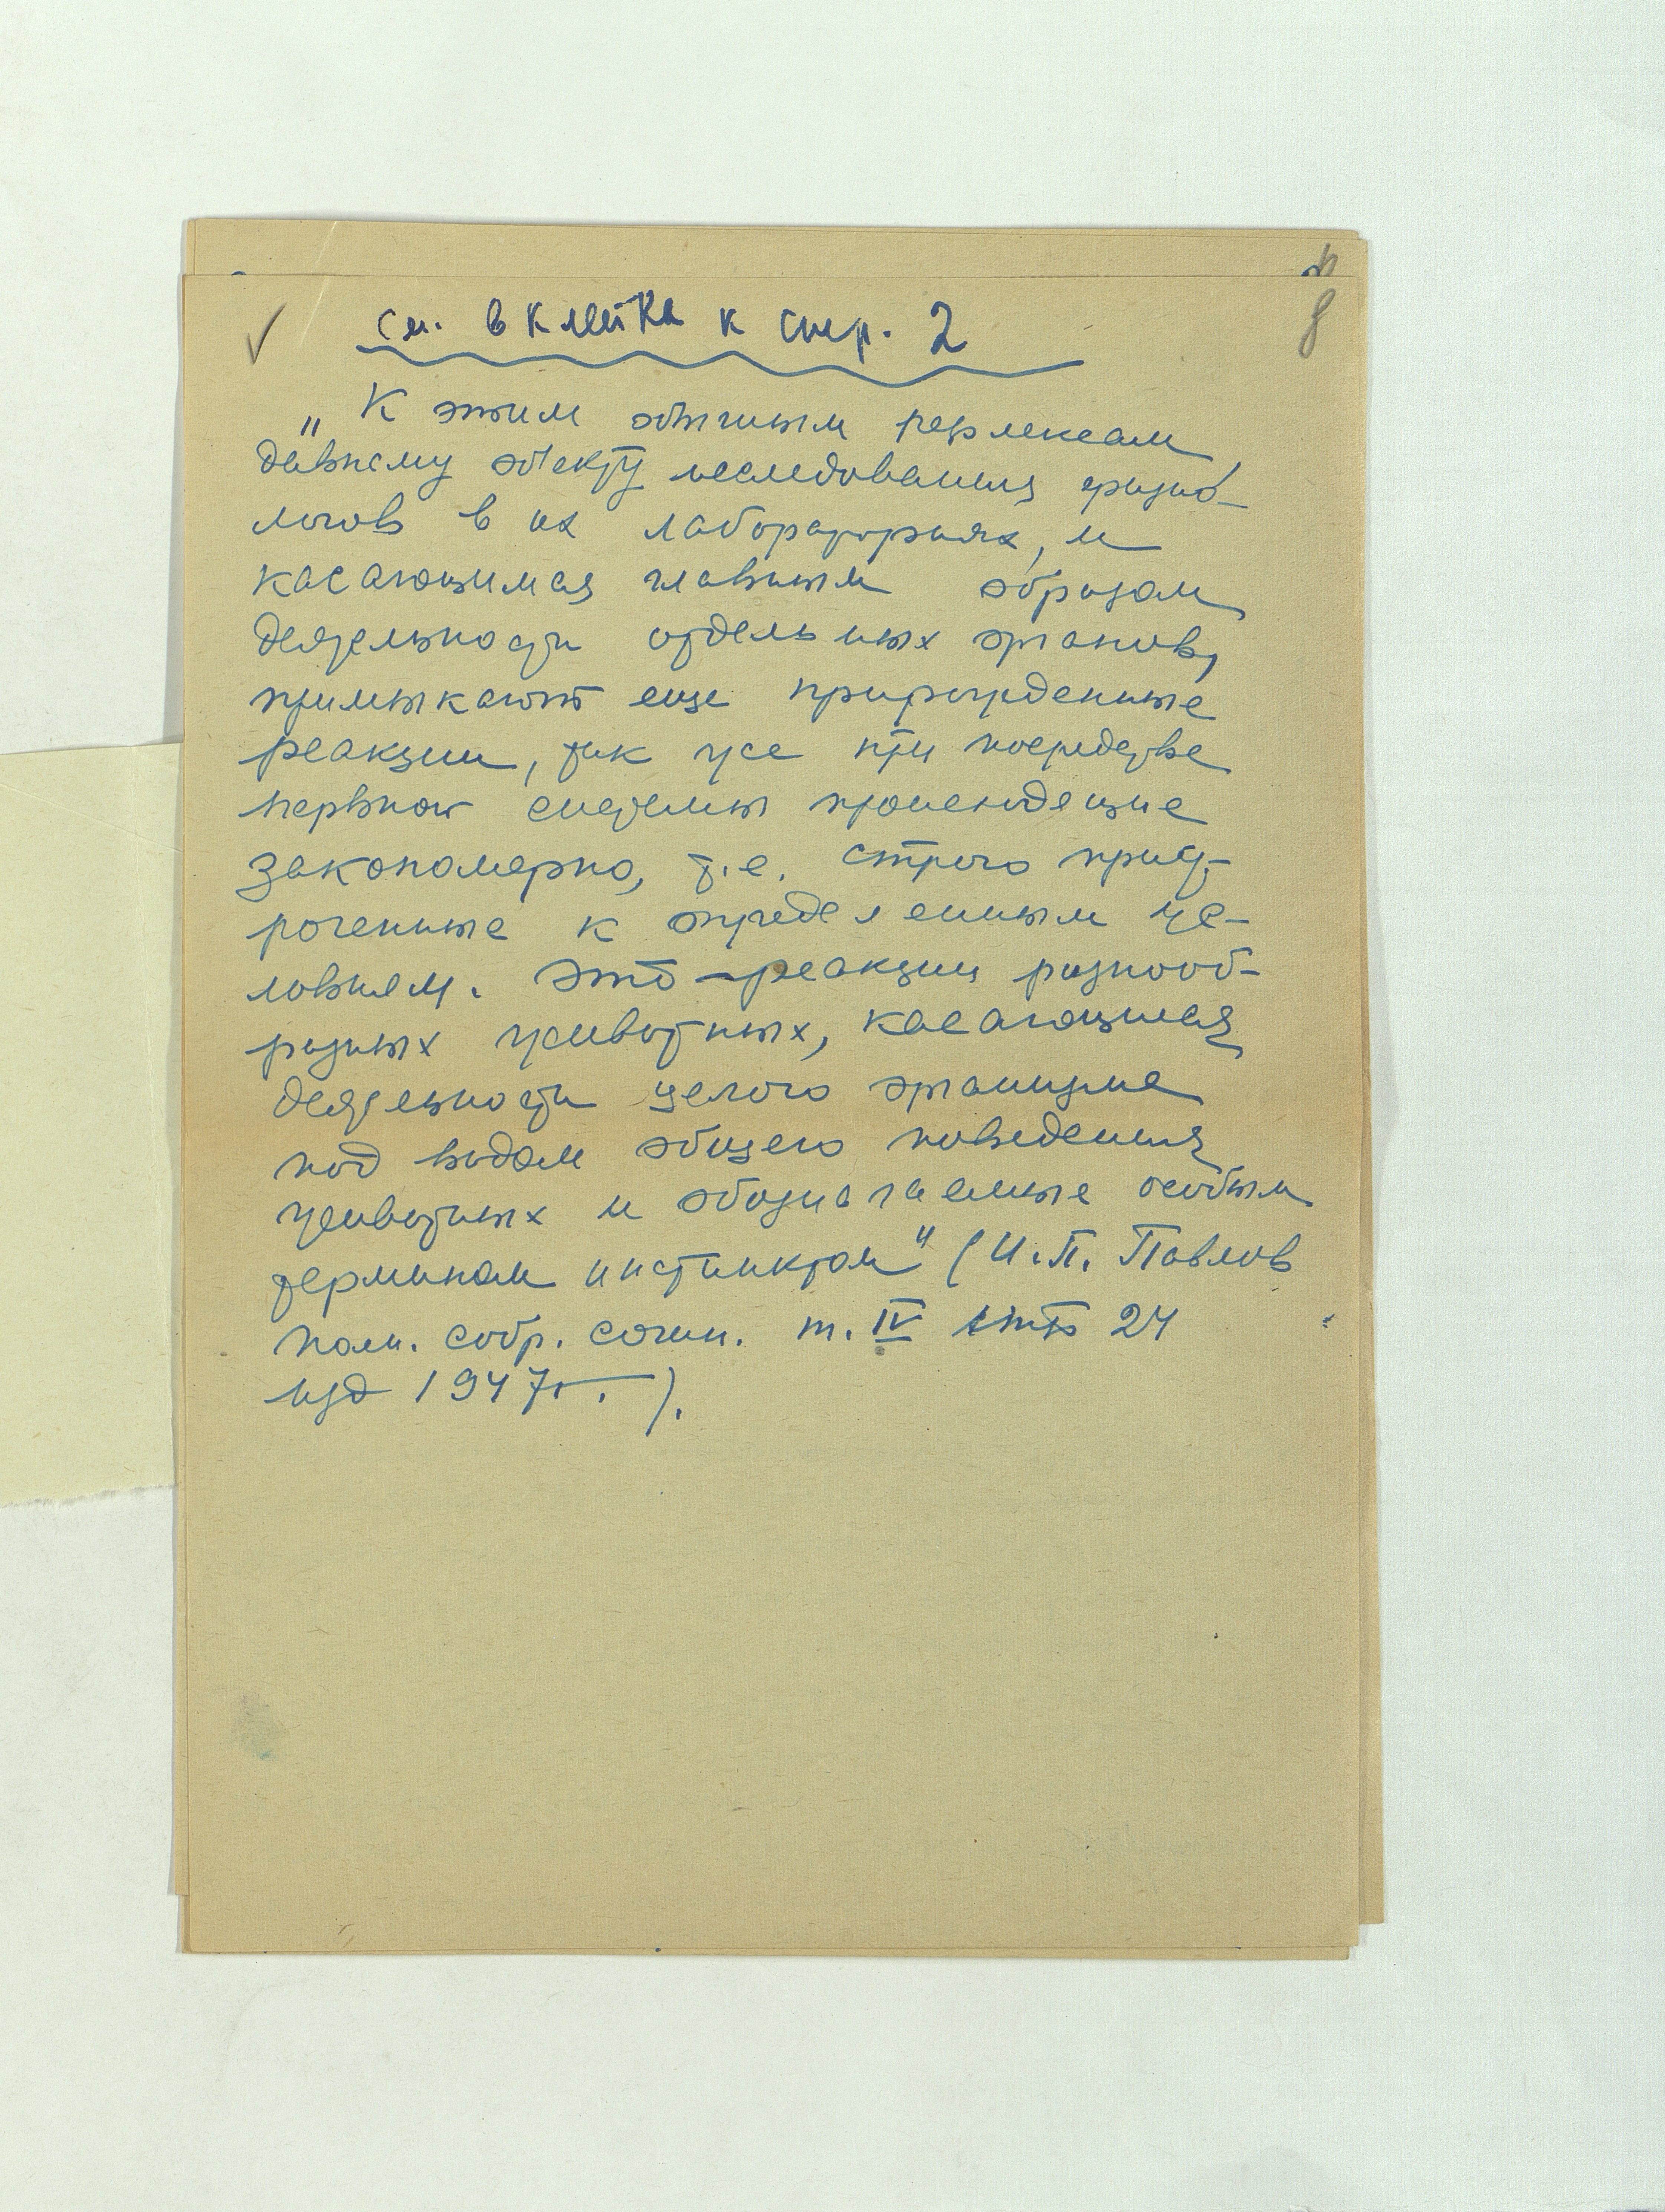 см. вклейка к стр. 2
8
„К этим обычным рефлексам,
давнему объекту исследования физио-
логов в их лабораториях, и
касающимся главным образом
деятельности отдельных органов,
примыкают еще прирожденные
реакции, так же при посредстве
нервной системы происходящие
закономерно, т.е. строго приу-
роченные к определенным ус-
ловиям. Это — реакции разнооб-
разных животных, касающиеся
деятельности целого организма
под видом общего поведения
животных и обозначаемые особым
термином инстинктом" (И.П. Павлов
полн. собр. сочин. т. IV стр 24
изд 1947г.).